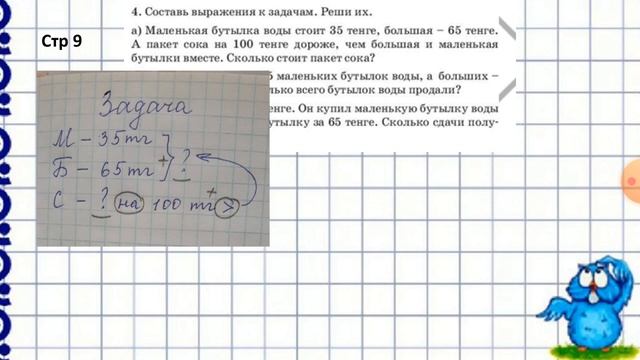 Стр 9
4. Составь выражения к задачам. Реши их.
а) Маленькая бутылка воды стоит 35 тенге, большая – 65 тенге.
А пакет сока на 100 тенге дороже, чем большая и маленькая
бутылки вместе. Сколько стоит пакет сока?
5 маленьких бутылок воды, а больших –
лько всего бутылок воды продали?
енге. Он купил маленькую бутылку воды
утылку за 65 тенге. Сколько сдачи полу-
Задача
М – 35 тг
Б – 65 тг + ?
С – ? на 100 тг + >